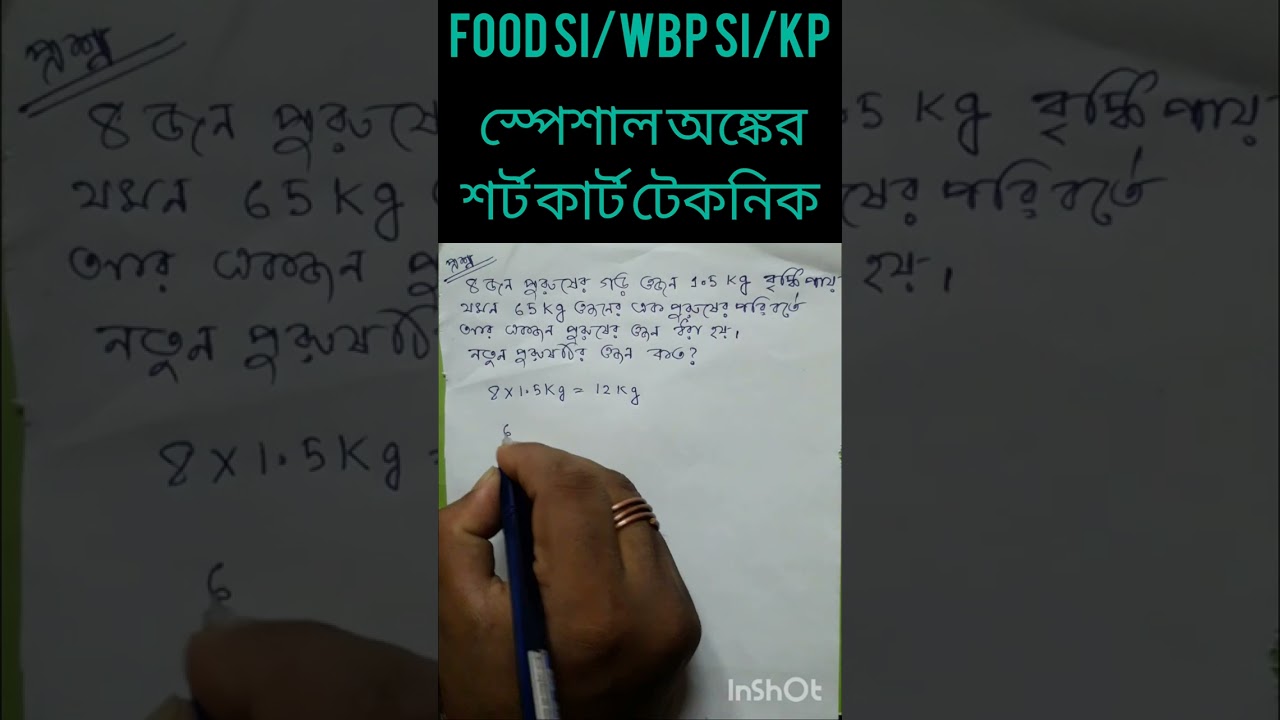 FOOD SI/WBP SI/KP
স্পেশাল অঙ্কের
শর্ট কার্ট টেকনিক
প্রশ্ন
৪ জন পুরুষের গড় ওজন 1.5 Kg বৃদ্ধি পায়
যখন 65 Kg ওজনের এক পুরুষের পরিবর্তে
আর একজন পুরুষের ওজন ধরা হয়।
নতুন পুরুষটির ওজন কত?
8 x 1.5 Kg = 12 Kg
6
InShOt